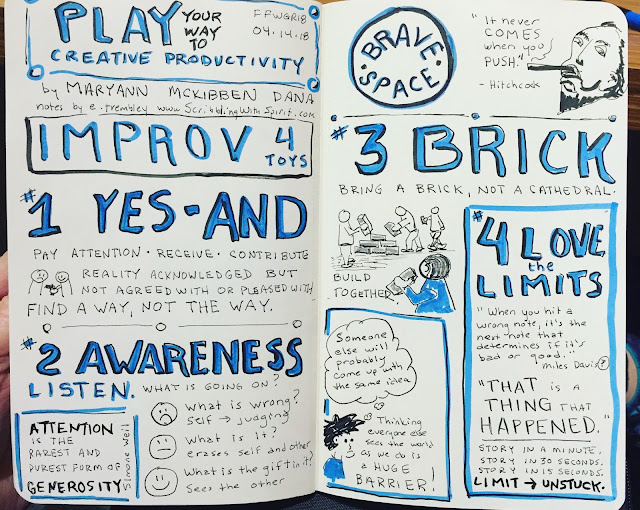 PLAY YOUR WAY TO
CREATIVE PRODUCTIVITY
FFWGR18
04.14.18
by MARYANN MCKIBBEN DANA
notes by e. trembley www.ScribblingWithSpirit.com
IMPROV 4 TOYS
#1 YES-AND
PAY ATTENTION · RECEIVE · CONTRIBUTE
REALITY ACKNOWLEDGED BUT
NOT AGREED WITH OR PLEASED WITH
FIND A WAY, NOT THE WAY.
#2 AWARENESS
LISTEN. WHAT IS GOING ON?
ATTENTION
IS THE
RAREST AND
PUREST FORM OF
GENEROSITY
Simone Weil
what is wrong?
self → judging
what is it?
erases self and other
What is the gift in it?
Sees the other
BRAVE · SPACE ·
"It never
COMES
when you
PUSH."
- Hitchcock
#3 BRICK
BRING A BRICK, NOT A CATHEDRAL.
BUILD
TOGETHER
Someone
else will
probably
come up with
the same idea
Thinking
everyone else
sees the world
as we do is
a HUGE
BARRIER!
#4 LOVE
the
LIMITS
"When you hit a
wrong note, it's the
next note that
determines if it's
bad or good."
- Miles Davis?
"THAT IS A
THING THAT
HAPPENED."
STORY IN A MINUTE.
STORY IN 30 SECONDS.
STORY IN 15 SECONDS.
LIMIT → UNSTUCK.